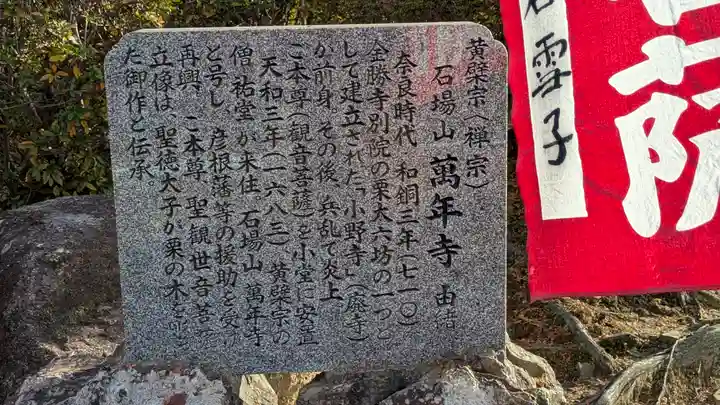 黄檗宗（禅宗）
石場山 萬年寺 由緒
奈良時代 和銅三年（七一〇）
金勝寺別院の栗太六坊の一つと
して建立された「小野寺」（廃寺）
が前身。その後、兵乱で炎上
ご本尊（観音菩薩）を小堂に安置
天和三年（一六八三） 黄檗宗の
僧 祐堂が来住、石場山 萬年寺
と号し、彦根藩等の援助を受け
再興。ご本尊 聖観世音菩
立像は、聖徳太子が栗の木を
た御作と伝承。
雪子
薩